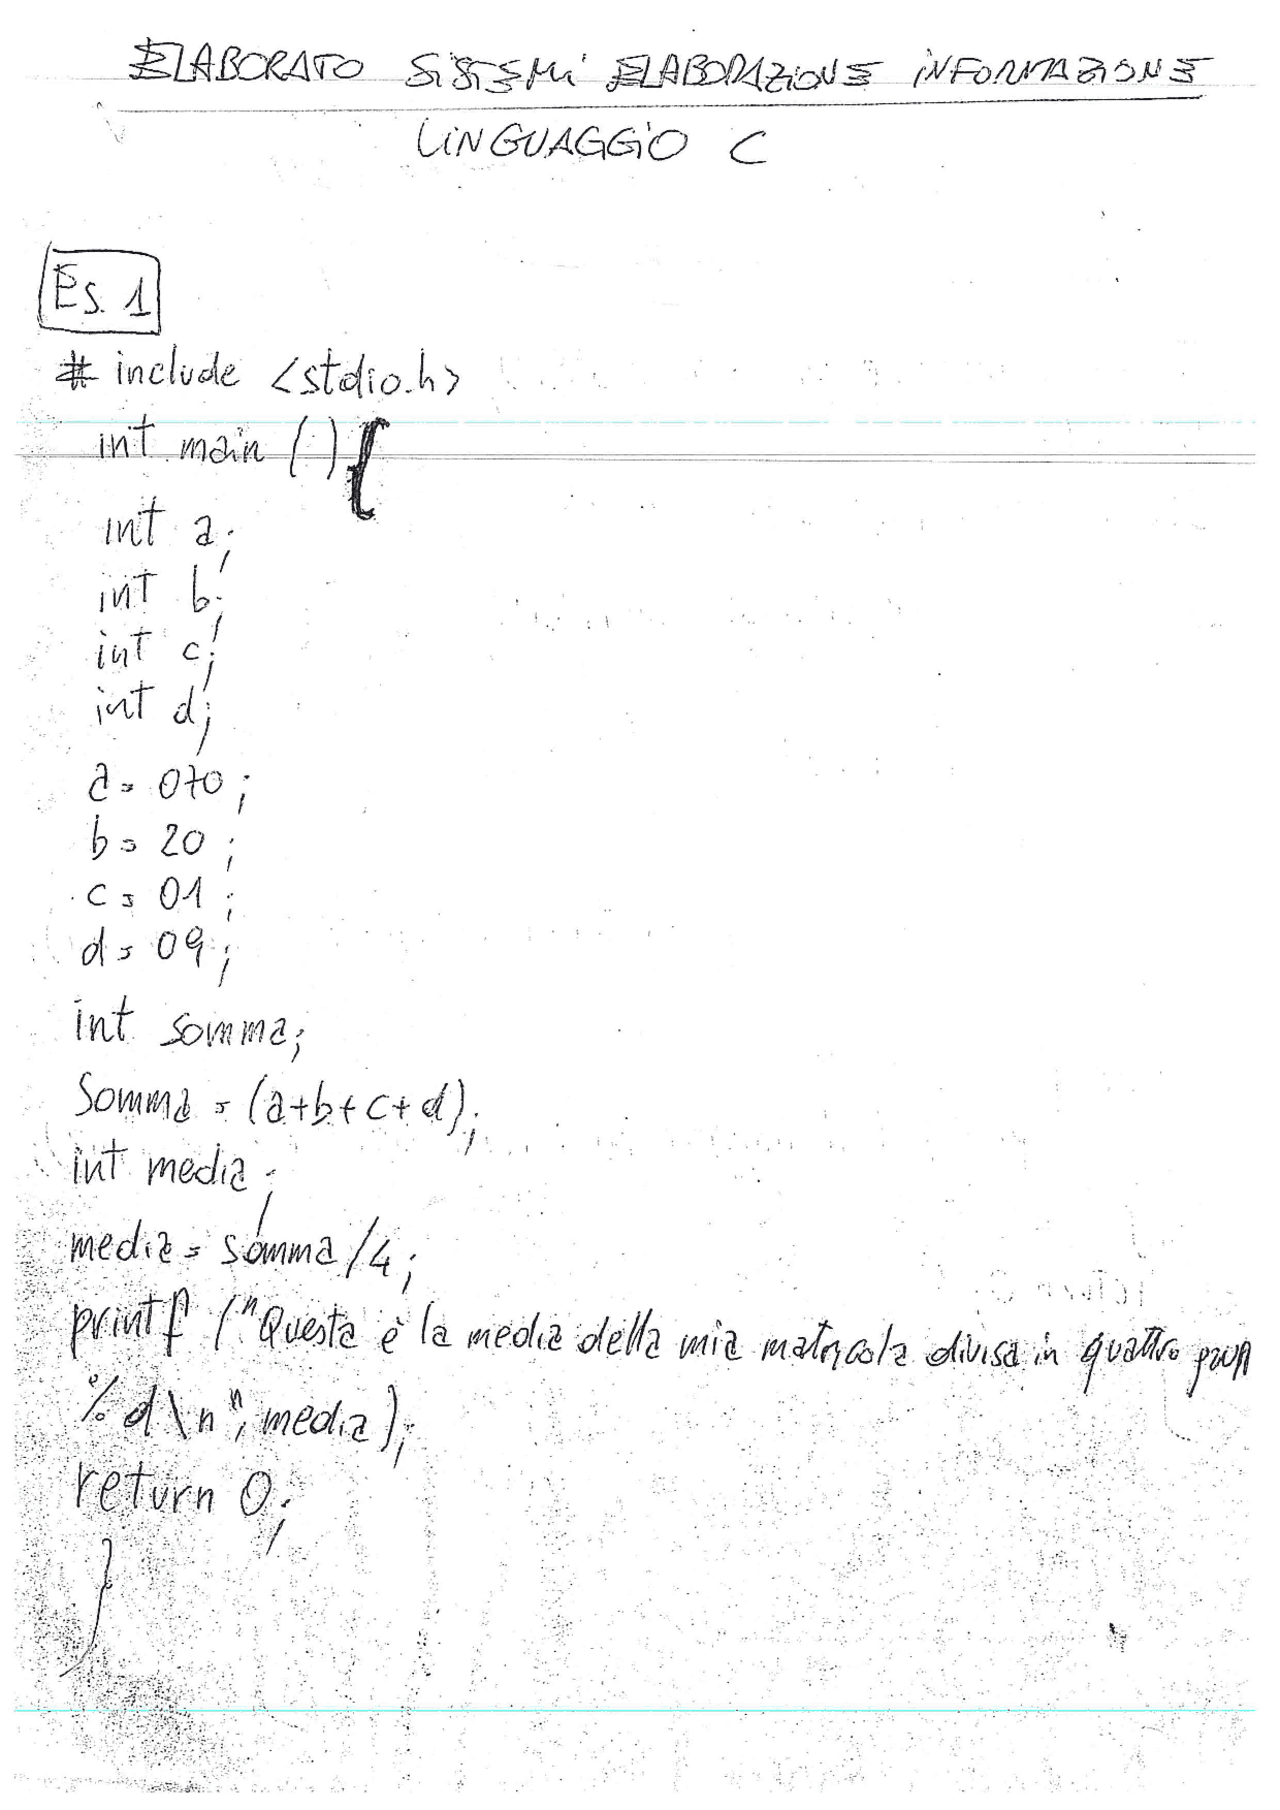 ELABORATO SISTEMI ELABORAZIONE INFORMAZIONE
LINGUAGGIO C
Es. 1
# include <stdio.h>
int main () {
int a;
int b;
int c;
int d;
a = 070;
b = 20;
c = 01;
d = 09;
int somma;
Somma = (a+b+c+d);
int media;
media = somma/4;
printf ("Questa è la media della mia matricola divisa in quattro
%d\n", media);
return 0;
}